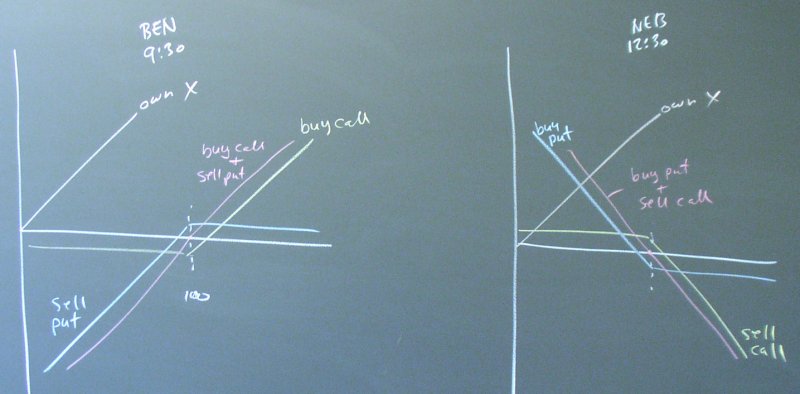 BEN
9:30
own X
buy call
+
sell put
buy call
sell
put
100
NEB
12:30
own X
buy
put
buy put
+
sell call
sell
call